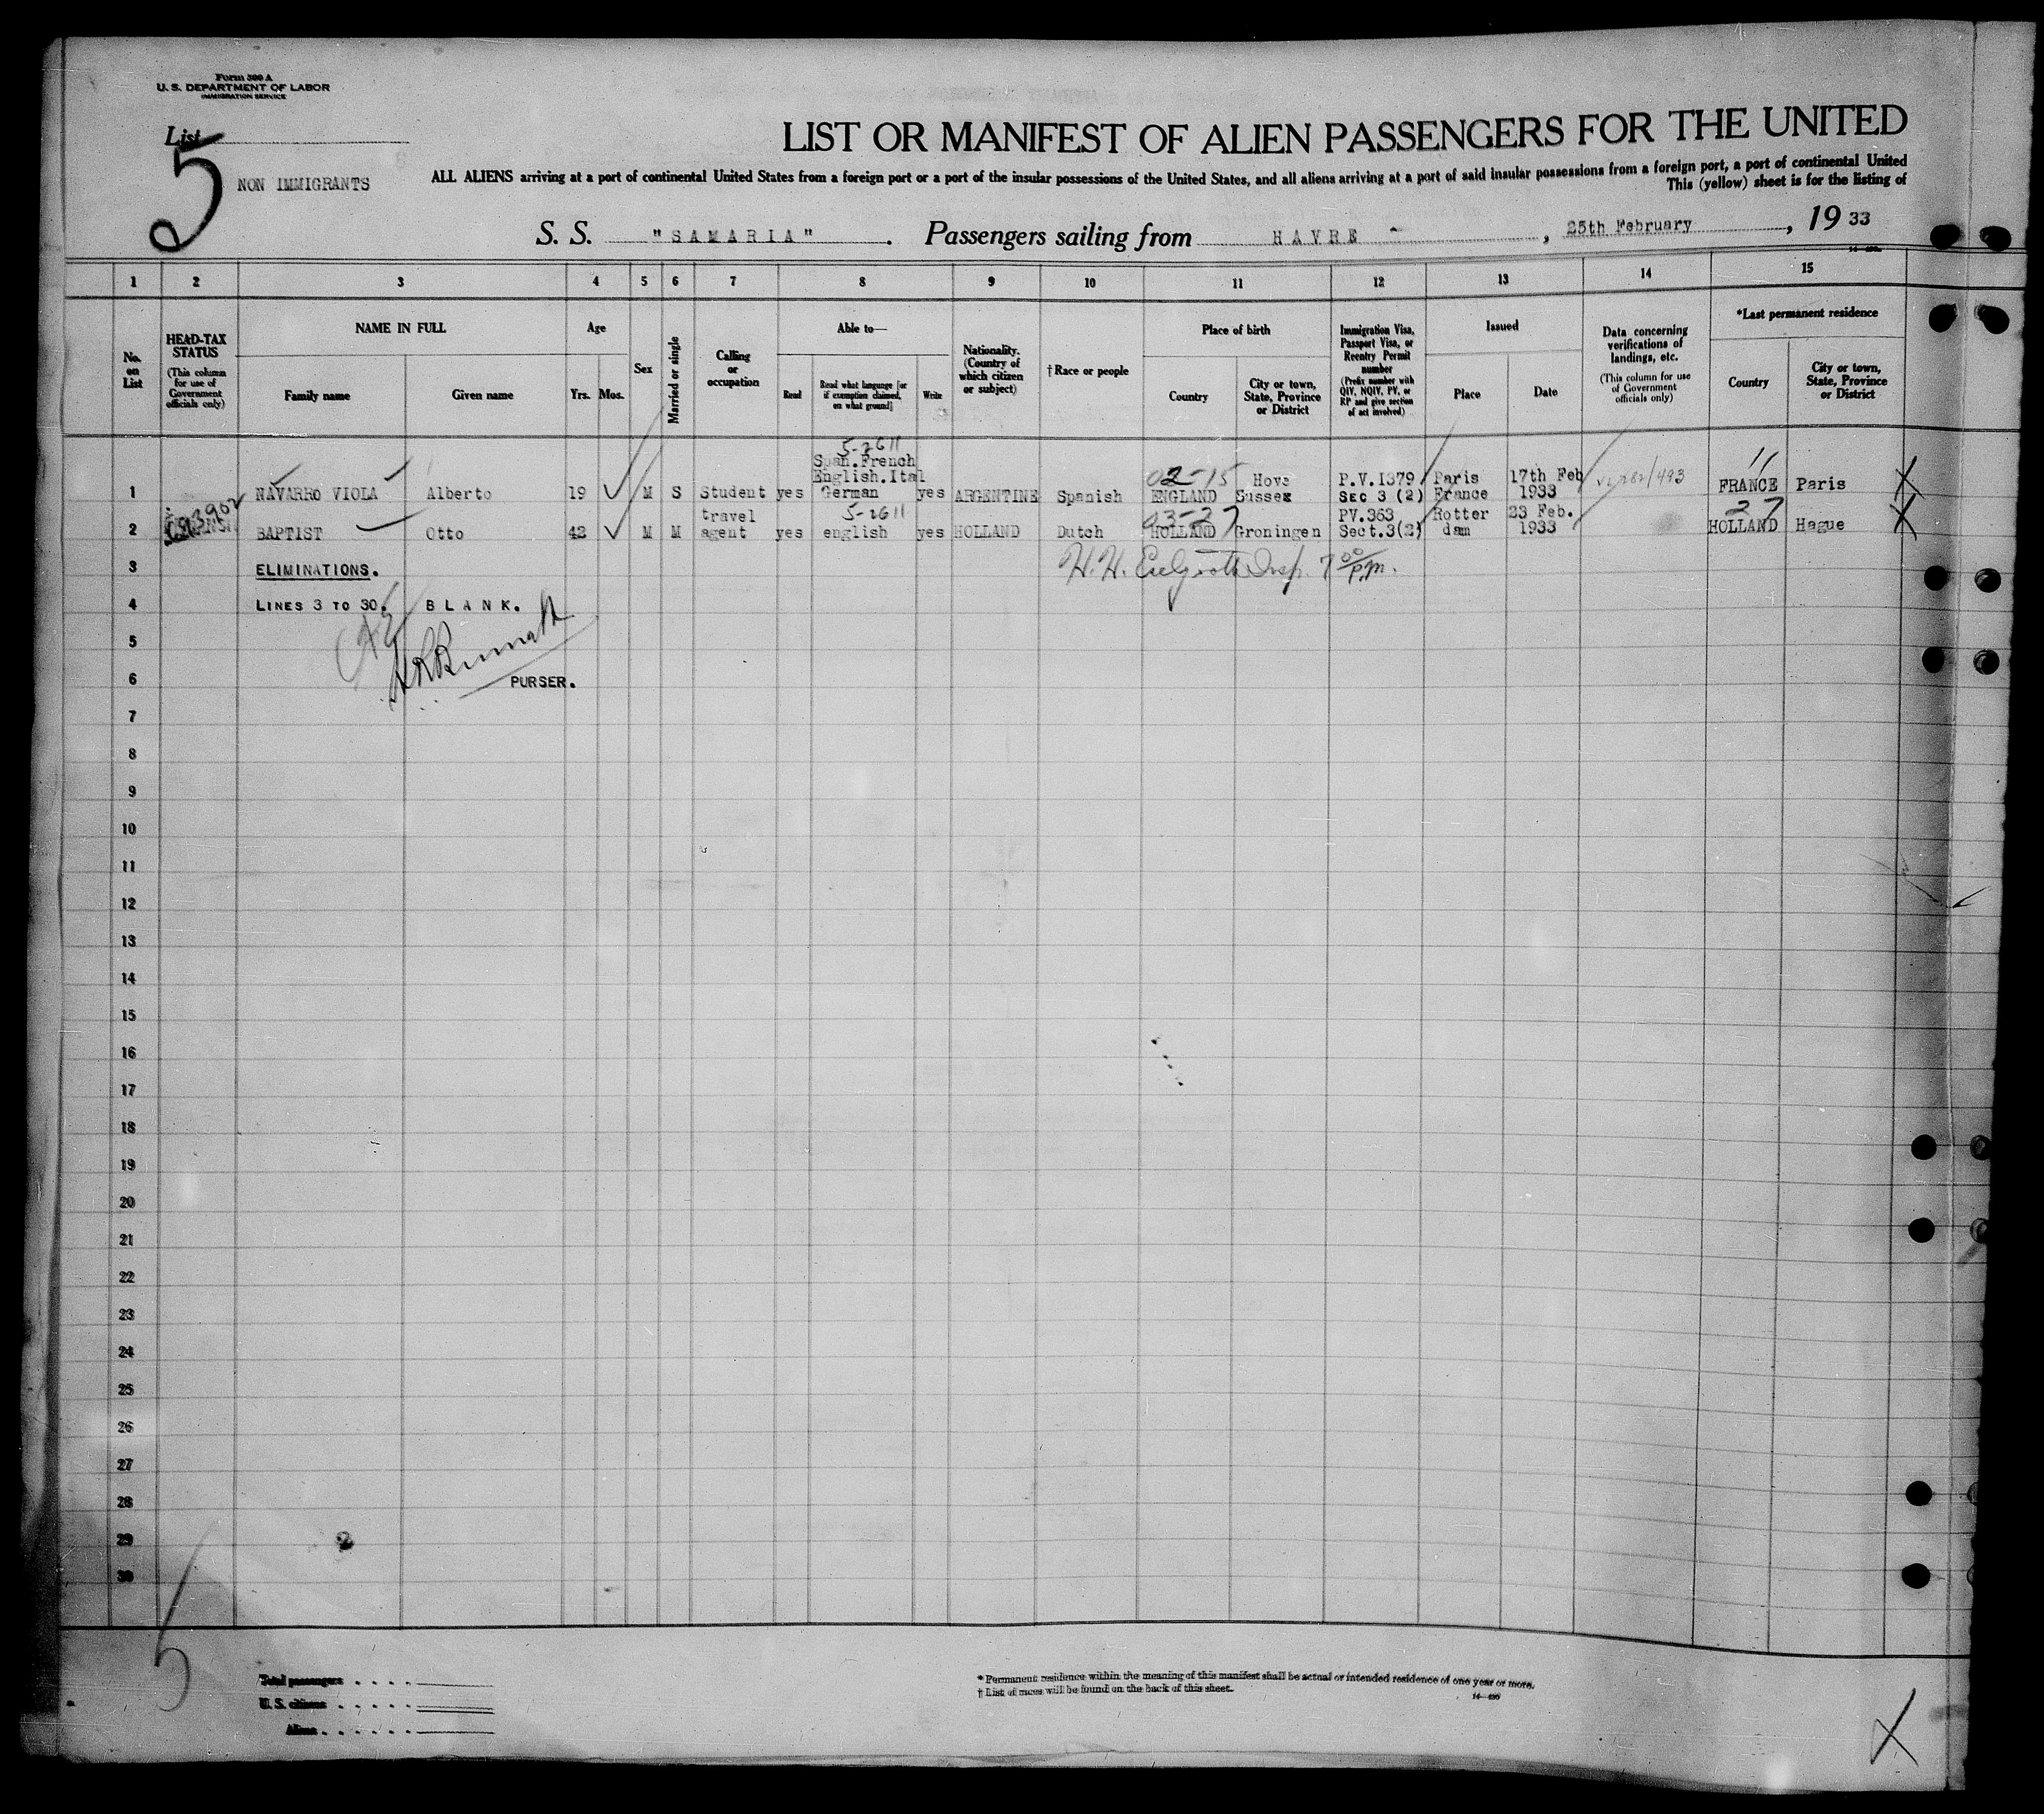 Form 500 A
U. S. DEPARTMENT OF LABOR
IMMIGRATION SERVICE
List
5
NON IMMIGRANTS
LIST OR MANIFEST OF ALIEN PASSENGERS FOR THE UNITED
ALL ALIENS arriving at a port of continental United States from a foreign port or a port of the insular possessions of the United States, and all aliens arriving at a port of said insular possessions from a foreign port, a port of continental United
This (yellow) sheet is for the listing of
S. S. "SAMARIA". Passengers sailing from HAVRE, 25th February, 19 33
1 2 3 4 5 6 7 8 9 10 11 12 13 14 15
No. on List
HEAD-TAX STATUS
(This column for use of Government officials only)
NAME IN FULL
Family name
Given name
Age
Yrs. Mos.
Sex
Married or single
Calling or occupation
Able to—
Read
Read what language [or if exemption claimed, on what ground]
Write
Nationality. (Country of which citizen or subject)
† Race or people
Place of birth
Country
City or town, State, Province or District
Immigration Visa, Passport Visa, or Reentry Permit number
(Prefix number with QIV, NQIV, PV, or RP and give section of act involved)
Issued
Place
Date
Data concerning verifications of landings, etc.
(This column for use of Government officials only)
*Last permanent residence
Country
City or town, State, Province or District
1 NAVARRO VIOLA Alberto 19 M S Student yes 5-2611 Span.French English.Ital German yes ARGENTINE Spanish 02-15 ENGLAND Hove Sussex P.V.1379 SEC 3 (2) Paris France 17th Feb 1933 11 FRANCE Paris X
2 BAPTIST Otto 42 M M travel agent yes 5-2611 english yes HOLLAND Dutch 03-27 HOLLAND Groningen PV.363 Sect.3(2) Rotter dam 23 Feb. 1933 27 HOLLAND Hague X
3 ELIMINATIONS. H. H. Insp. 7 00 P.M.
4 LINES 3 TO 30. BLANK.
5
6 PURSER.
7
8
9
10
11
12
13
14
15
16
17
18
19
20
21
22
23
24
25
26
27
28
29
30
5
Total passengers
U. S. citizens
Aliens
* Permanent residence within the meaning of this manifest shall be actual or intended residence of one year or more.
† List of races will be found on the back of this sheet.
X